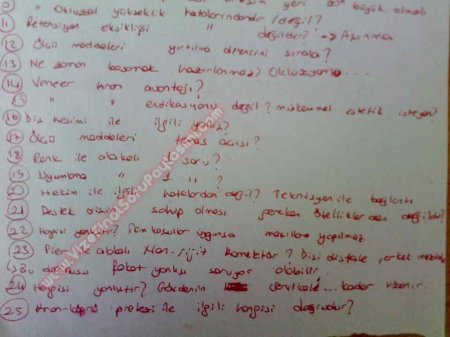 " Okluzal yükseklik hatalarındandır / değil?
11 Retansiyon eksikliği " değildir? => Aşınma
12 Ölçü maddeleri yırtılma direncini sırala?
13 Ne zaman basamak hazırlanmaz? Okluzyonu ...
14 Veneer kron avantajı?
15 " " endikasyonu değil? mükemmel estetik isteyen?
16 Diş kesimi ile ilgili yanlış?
17 Ölçü maddeleri temas açısı?
18 Renk ile alakalı soru?
19 Uyumlama " " ?
20 Hekim ile ilgili hatalardan değil? Teknisyen ile bağlantı
21 Destek dişin sahip olması gereken özelliklerden değildir?
22 Hangisi yanlıştır? Tüm koşullar uygunsa yapılmaz
23 Pier ile alakalı Non-rijit konektör? Dişi distale, erkek meziale
Bu sorusu fakat yanlışı soruyor olabilir.
24 Hangisi yanlıştır? Gövdenin servikale ... kadar uzanır.
25 Kron-köprü protezi ile ilgili hangisi doğrudur?
www.VizeFinalSoruPaylasimi.com